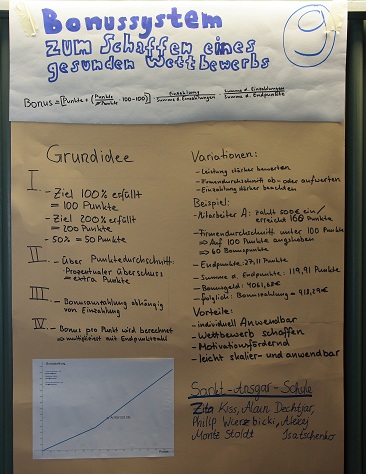 Bonussystem
zum Schaffen eines
gesunden Wettbewerbs
9
Grundidee
I
- Ziel 100% erfüllt
= 100 Punkte
- Ziel 200% erfüllt
= 200 Punkte
- 50% = 50 Punkte
II
- Über Punktedurchschnitt:
Prozentualer überschuss
= extra Punkte
III
- Bonusauszahlung abhängig
von Einzahlung
IV.
- Bonus pro Punkt wird berechnet
⇒ multipliziert mit Endpunktzahl
Variationen:
- Leistung stärker bewerten
- Firmendurchschnitt ab- oder aufwerten
- Einzahlung stärker beachten
Beispiel:
- Mitarbeiter A: zahlt 500€ ein/
erreicht 160 Punkte
- Firmendurchschnitt unter 100 Punkte
⇒ Auf 100 Punkte angehoben
⇒ 60 Bonuspunkte
- Endpunkte: 27,11 Punkte
- Summe d. Endpunkte: 119,91 Punkte
- Bonusgeld: 4061,68€
- folglich: Bonuszahlung =
Vorteile:
- individuell Anwendbar
- Wettbewerb schaffen
- Motivationsfördernd
- leicht skalier- und anwendbar
Sankt-Ansgar-Schule
Zita Kiss, Alain Dechtjar,
Philip Wierzbicki, Alexy
Moritz Stoldt Isatschenko